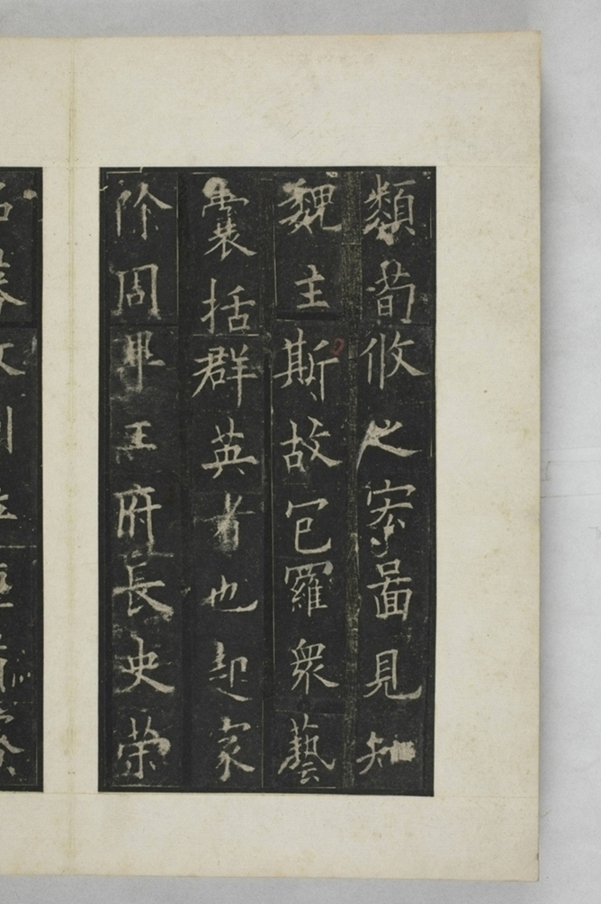 類荀攸之宻啚見知
魏主斯故包羅衆藝
囊括群英者也起家
除周畢王府長史榮